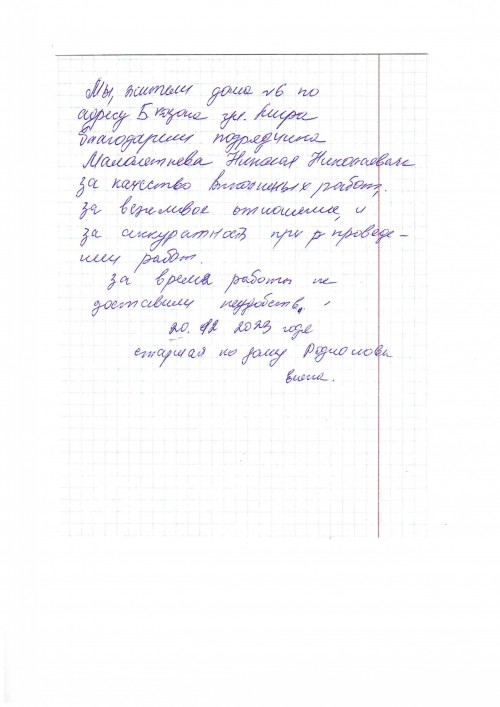 Мы, жители дома №6 по
адресу ул. Мира
благодарим подрядчика
Николая Николаевича
за качество выполненых работ,
за вежливое отношение, и
за аккуратность при проведе-
нии работ.
За время работы не
доставили неудобств.
20. 12 2023 года
старшая по дому